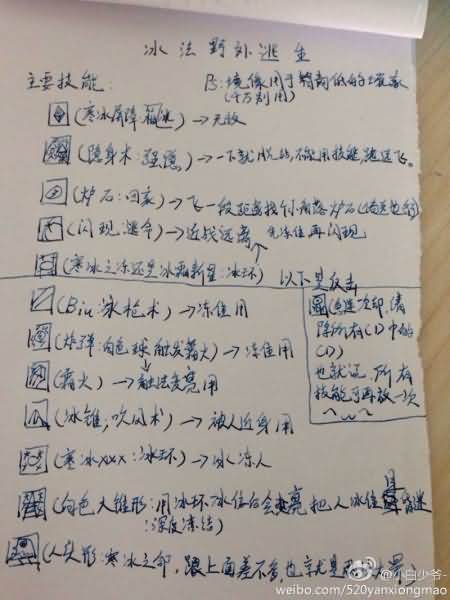 冰法野外逃生
主要技能:
PS:镜像用于智商低的玩家
(千万别用)
(寒冰屏障:箱) → 无敌
(隐身术:强隐) → 一下就脱战,不能用技能,跑远飞。
(炉石:回家) → 飞一段距离找个角落炉石
(闪现:逃命) → 近战远离 先冻住再闪现
(寒冰之冻还是冰霜新星:冰环) 以下是反击
(Biu:冰枪术) → 冻住用
(炸弹:白色球 触发霜火) → 冻住用
(霜火) → 触法变亮用
(冰锥,吹风术) → 被人近身用
(寒冰xxx:冰环) → 冰冻人
(白色大锥形:用冰环冰住后会变亮 把人冰住 是昏迷
:深度冻结)
(人头形:寒冰之,跟上面差不多,也就是
急速冷却,清
除所有CD中的
CD)
也就说,所有
技能可再放一次
@小白少爷-
weibo.com/520yanxiongmao